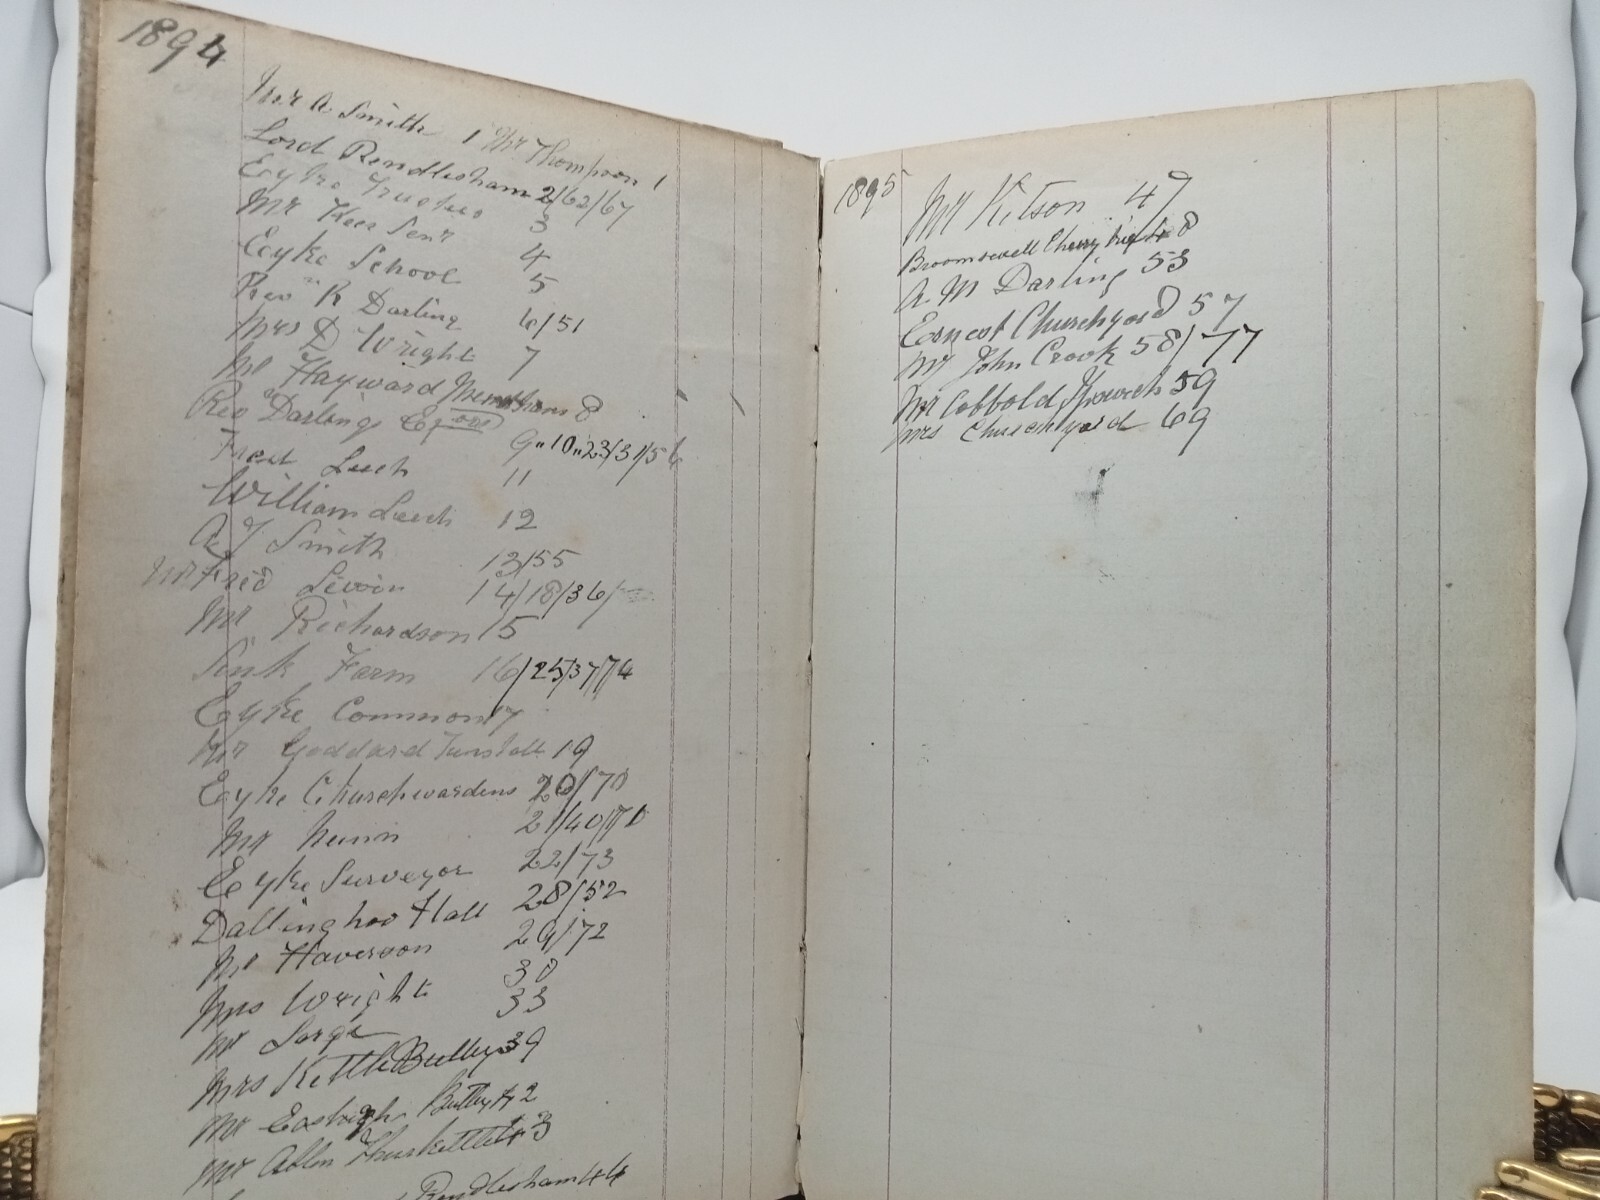 1894
Mr A Smith 1 Mr Thompson 1
Lord Rendlesham 2/62/67
Eyke Trustees 3
Mr Keer Senr 4
Eyke School 5
Rev R Darling 6/51
Mrs D Wright 7
Mr Hayward 8
Rev Darling Esq 9"10"23/31/56
Fred Leech 11
William Leech 12
A J Smith 13/55
Mr Fred 14/18/36/
Mr Richardson 15
Sink Farm 16/25/37/74
Eyke Common 17
Mr Goddard Tunstall 19
Eyke Churchwardens 20/70
Mr Nunn 21/40/71
Eyke Surveyor 22/73
Dallinghoo Hall 28/52
Mr Haverson 29/72
Mrs Wright 30
Mr Large 33
Mrs Kettle Butley 39
Mr Butley 42
Mr Thurkettle 43
Rendlesham 44
1895
Mr Kitson 47
Bromeswell Cherry 8
A M Darling 53
Earnest Churchyard 57
Mr John Crook 58/77
Mr Cobbold Ipswich 59
Mrs Churchyard 69